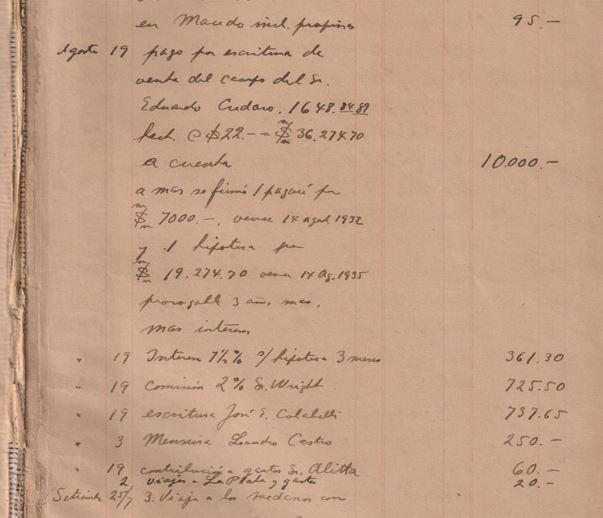 en Macedo incl. propina 95.-
Agosto 19 pago por escritura de
venta del campo del Sr.
Eduardo Cudaro. 1648.8489
hect. @ $22.- = $ 36.274.70
a cuenta 10.000.-
a mas se firmó 1 pagaré por
$ 7000.-, vence 14 agst. 1932
y 1 hipoteca por
$ 19.274.70 vence 14 Ag. 1935
prorogable 3 años mas,
mas interes
" 19 Interes 7½% s/ hipoteca 3 meses 361.30
" 19 Comision 2% Sr. Wright 725.50
" 19 escritura José E. 737.65
" 3 Mensura Leandro Castro 250.-
" 19 contribución a gastos Sr. Alitta 60.-
2 viajes a La Plata y gastos 20.-
Setiembre 25/7 3. Viaje a los medanos con